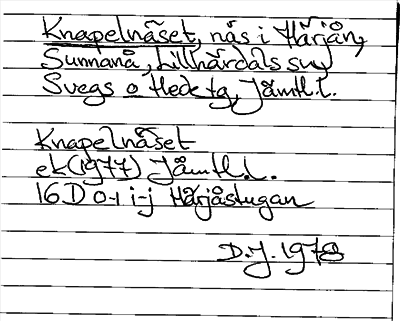 Knapelnäset, näs i Härjån,
Sunnanå, Lillhärdals sn,
Svegs o Hede tg, Jämtl.l.
Knapelnäset
ek (1977) Jämtl.l.
16D 0-1 i-j Härjåstugan
D.J. 1978